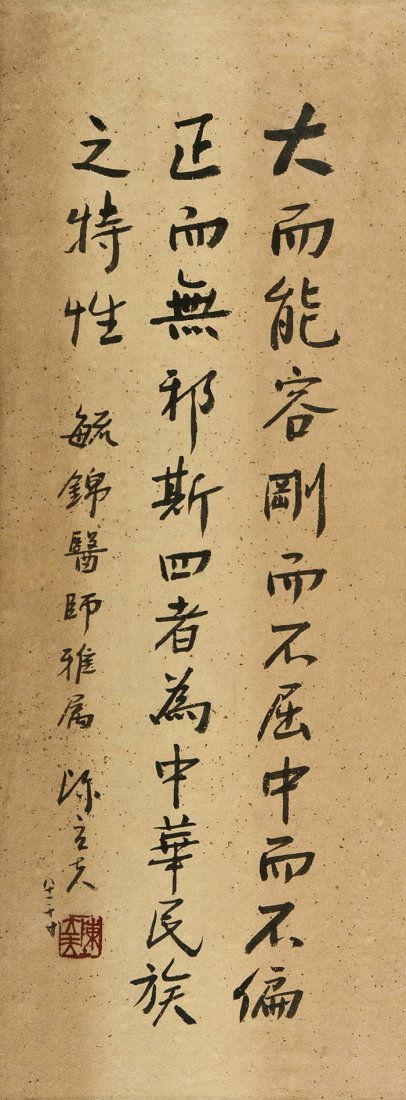 大而能容剛而不屈中而不偏
正而無邪斯四者為中華民族
之特性
毓錦醫師雅屬 陳立夫
陳立夫